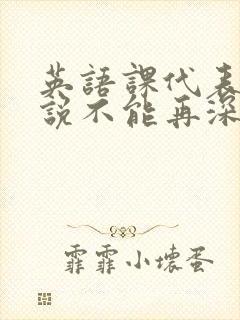 英語課代表
說不能再深
霏霏小壞蛋